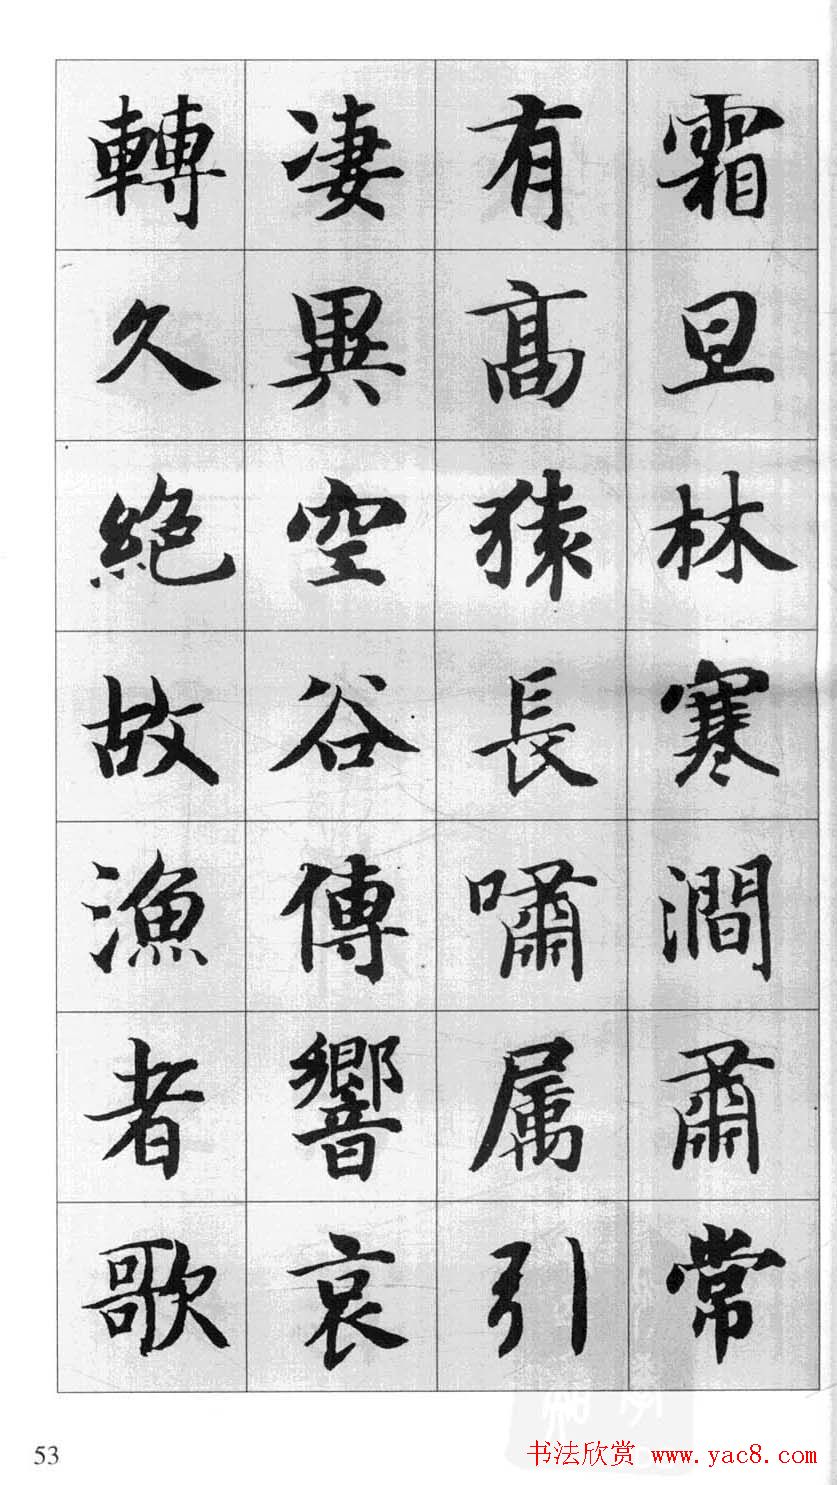 霜旦林寒澗肅常
有高猿長嘯属引
凄異空谷傳響哀
轉久絕故漁者歌
53
书法欣赏 www.yac8.com